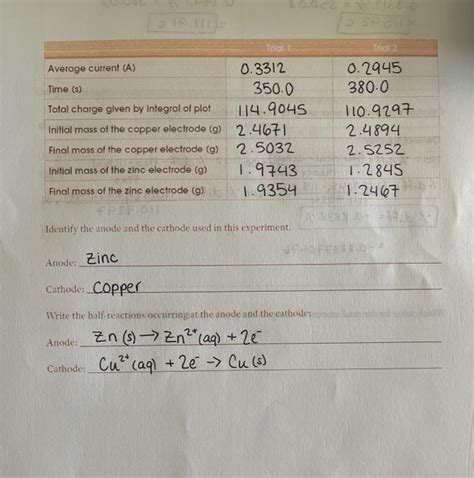 Trial 1 Trial 2
Average current (A) 0.3312 0.2945
Time (s) 350.0 380.0
Total charge given by integral of plot 114.9045 110.9297
Initial mass of the copper electrode (g) 2.4671 2.4894
Final mass of the copper electrode (g) 2.5032 2.5252
Initial mass of the zinc electrode (g) 1.9743 1.2845
Final mass of the zinc electrode (g) 1.9354 1.2467
Identify the anode and the cathode used in this experiment.
Anode: Zinc
Cathode: Copper
Write the half-reactions occurring at the anode and the cathode:
Anode: Zn (s) → Zn²⁺ (aq) + 2e⁻
Cathode: Cu²⁺ (aq) + 2e⁻ → Cu (s)